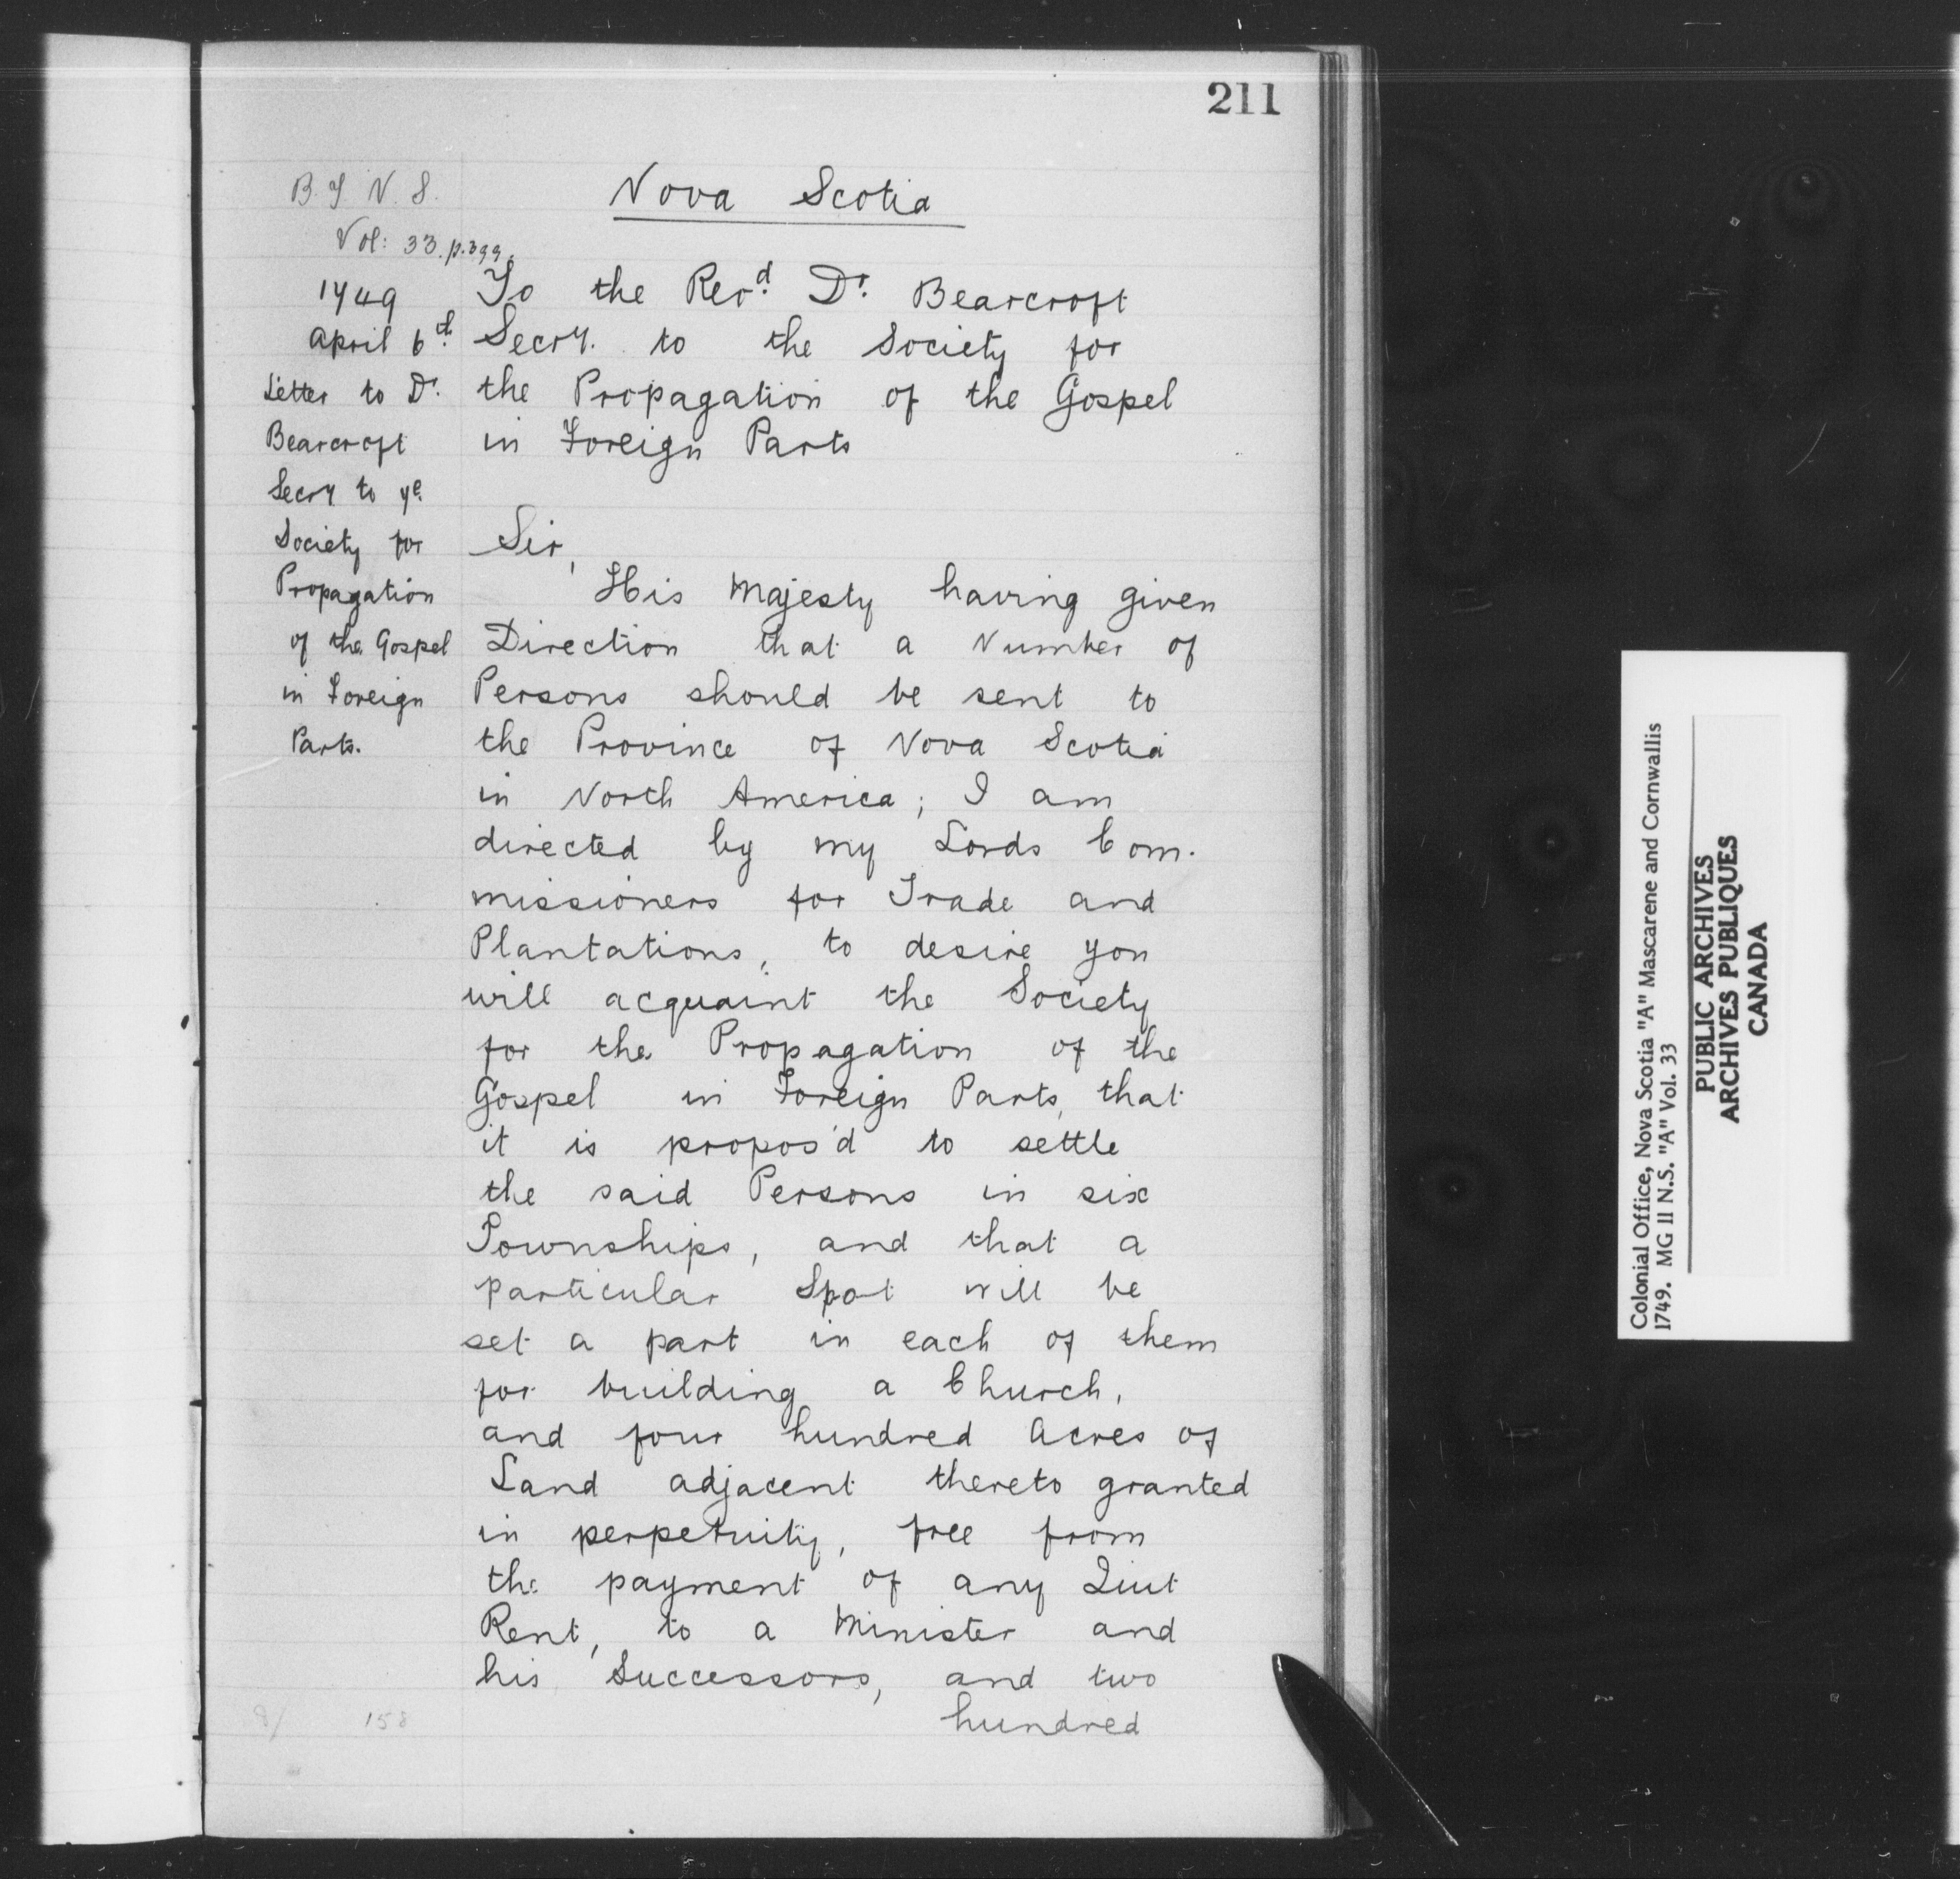 211
B. T. N. S.
Vol: 33. p. 399.
Nova Scotia
1749
April 6th
Letter to Dr.
Bearcroft
Secry to ye
Society for
Propagation
of the Gospel
in Foreign
Parts.
To the Revd. Dr. Bearcroft
Secry. to the Society for
the Propagation of the Gospel
in Foreign Parts
Sir,
His Majesty having given
Direction that a Number of
Persons should be sent to
the Province of Nova Scotia
in North America; I am
directed by my Lords Com-
missioners for Trade and
Plantations, to desire you
will acquaint the Society
for the Propagation of the
Gospel in Foreign Parts, that
it is propos'd to settle
the said Persons in six
Townships, and that a
particular Spot will be
set a part in each of them
for building a Church,
and four hundred Acres of
Land adjacent thereto granted
in perpetuity, free from
the payment of any Quit
Rent, to a Minister and
his Successors, and two
hundred
158
Colonial Office, Nova Scotia "A" Mascarene and Cornwallis
1749. MG 11 N.S. "A" Vol. 33
PUBLIC ARCHIVES
ARCHIVES PUBLIQUES
CANADA